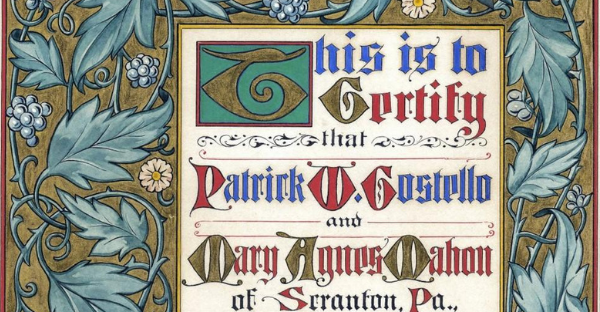 This is to
Certify
that
Patrick W. Costello
and
Mary Agnes Mahon
of Scranton, Pa.,